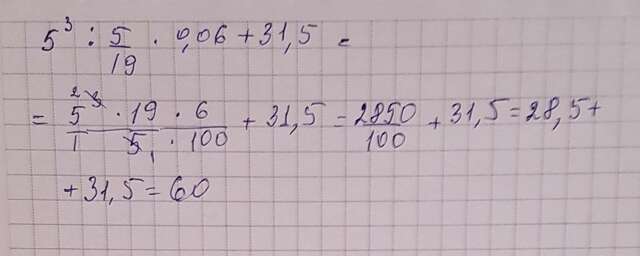 5³ : 5/19 · 0,06 + 31,5 =
= 5² ³/1 · 19/5 1 · 6/100 + 31,5 = 2850/100 + 31,5 = 28,5 +
+ 31,5 = 60